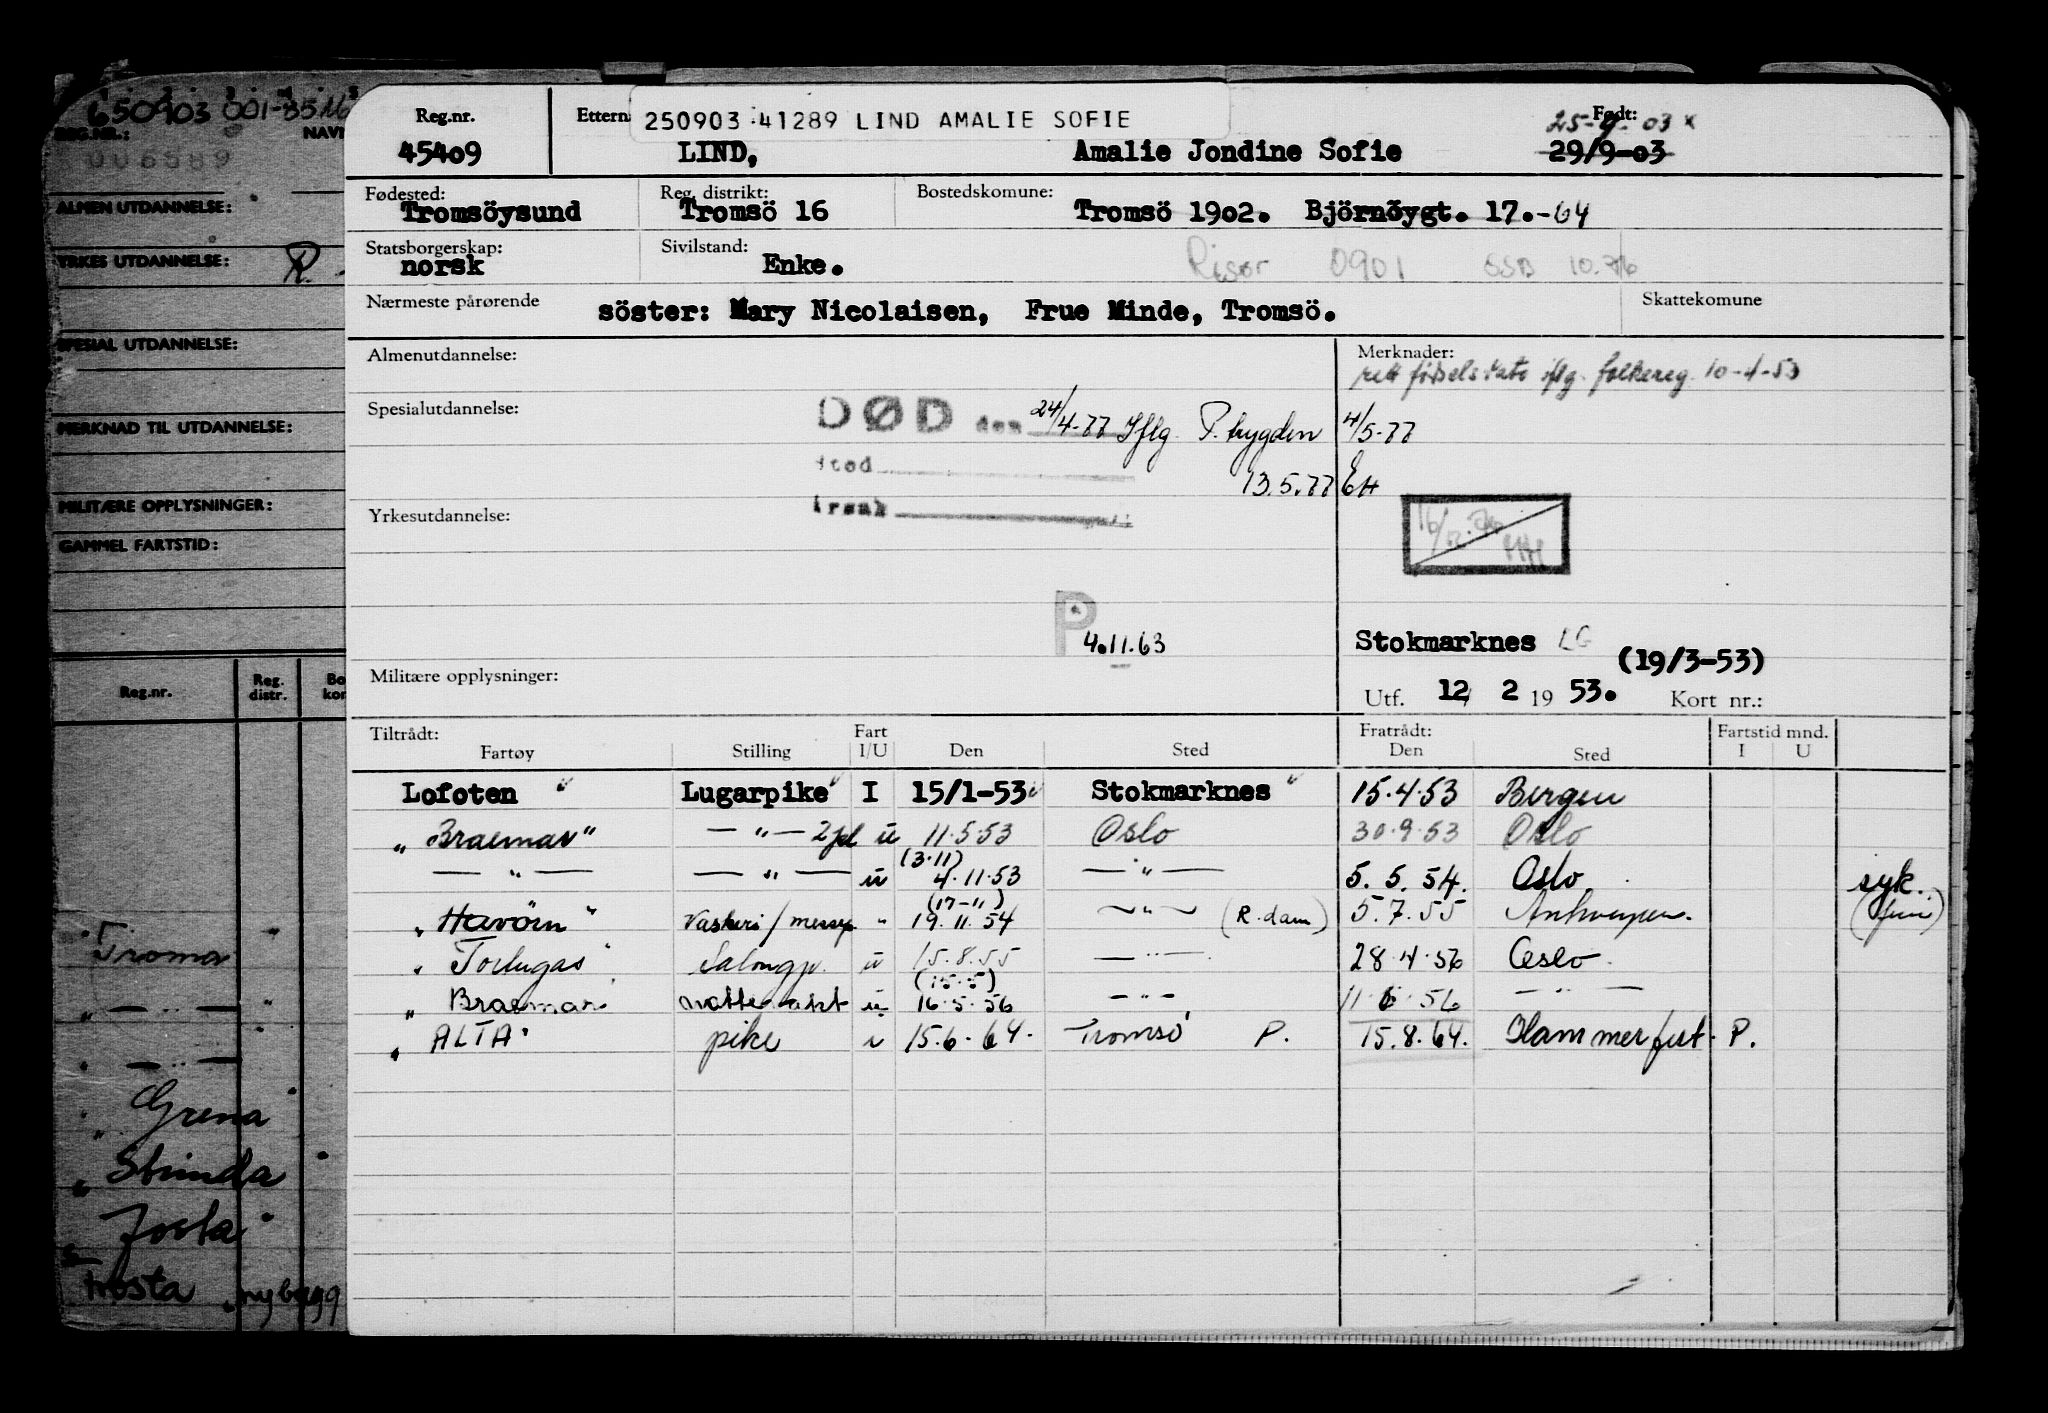 650903 001-35
REG.NR.: NAV
006589
ALMEN UTDANNELSE:
YRKES UTDANNELSE: R.
SPESIAL UTDANNELSE:
MERKNAD TIL UTDANNELSE:
MILITÆRE OPPLYSNINGER:
GAMMEL FARTSTID:
Reg.nr. Reg. distr. Bo kor
Troma
„ — „ —
„ — „ —
„ Grena
„ Stinda
Josta
Trosta nybygg
Reg.nr. Ettern 250903 41289 LIND AMALIE SOFIE Født: 25-9-03 x
45409 LIND, Amalie Jondine Sofie 29/9-03
Fødested: Reg. distrikt: Bostedskomune:
Tromsöysund Tromsö 16 Tromsö 1902. Björnöygt. 17.-64
Statsborgerskap: Sivilstand:
norsk Enke. Risør 0901 SSB 10.76
Nærmeste pårørende söster: Mary Nicolaisen, Frue Minde, Tromsö. Skattekomune
Almenutdannelse: Merknader:
rett fødselsdato iflg. folkereg. 10-4-53
Spesialutdannelse: DØD den 24/4-77 Iflg. P. trygden 4/5-77
sted 13.5.77 EH
Yrkesutdannelse: årsak
P 4.11.63
Stokmarknes LG (19/3-53)
Militære opplysninger: Utf. 12/ 2 19 53. Kort nr.:
Tiltrådt: Fart Fratrådt: Fartstid mnd.
Fartøy Stilling I/U Den Sted Den Sted I U
Lofoten Lugarpike I 15/1-53 Stokmarknes 15.4.53 Bergen
„ Braemar" — „ — 2 kl u 11.5.53 Oslo 30.9.53 Oslo
(3.11)
— „ — — „ — u 4.11.53 — „ — 5.5.54. Oslo syk.
(17-11)
„ Havörn" Vaskeri/messep. " 19.11.54 — „ — (R.dam) 5.7.55 Antwerpen. (juni)
„ Torlugas" Salongp. u 15.8.55 — „ — 28.4.56 Oslo.
(15.5)
„ Braemar" u 16.5.56 — „ — 11.6.56 — „ —
„ ALTA" pike i 15.6.64. Tromsö P. 15.8.64. Hammerfest. P.